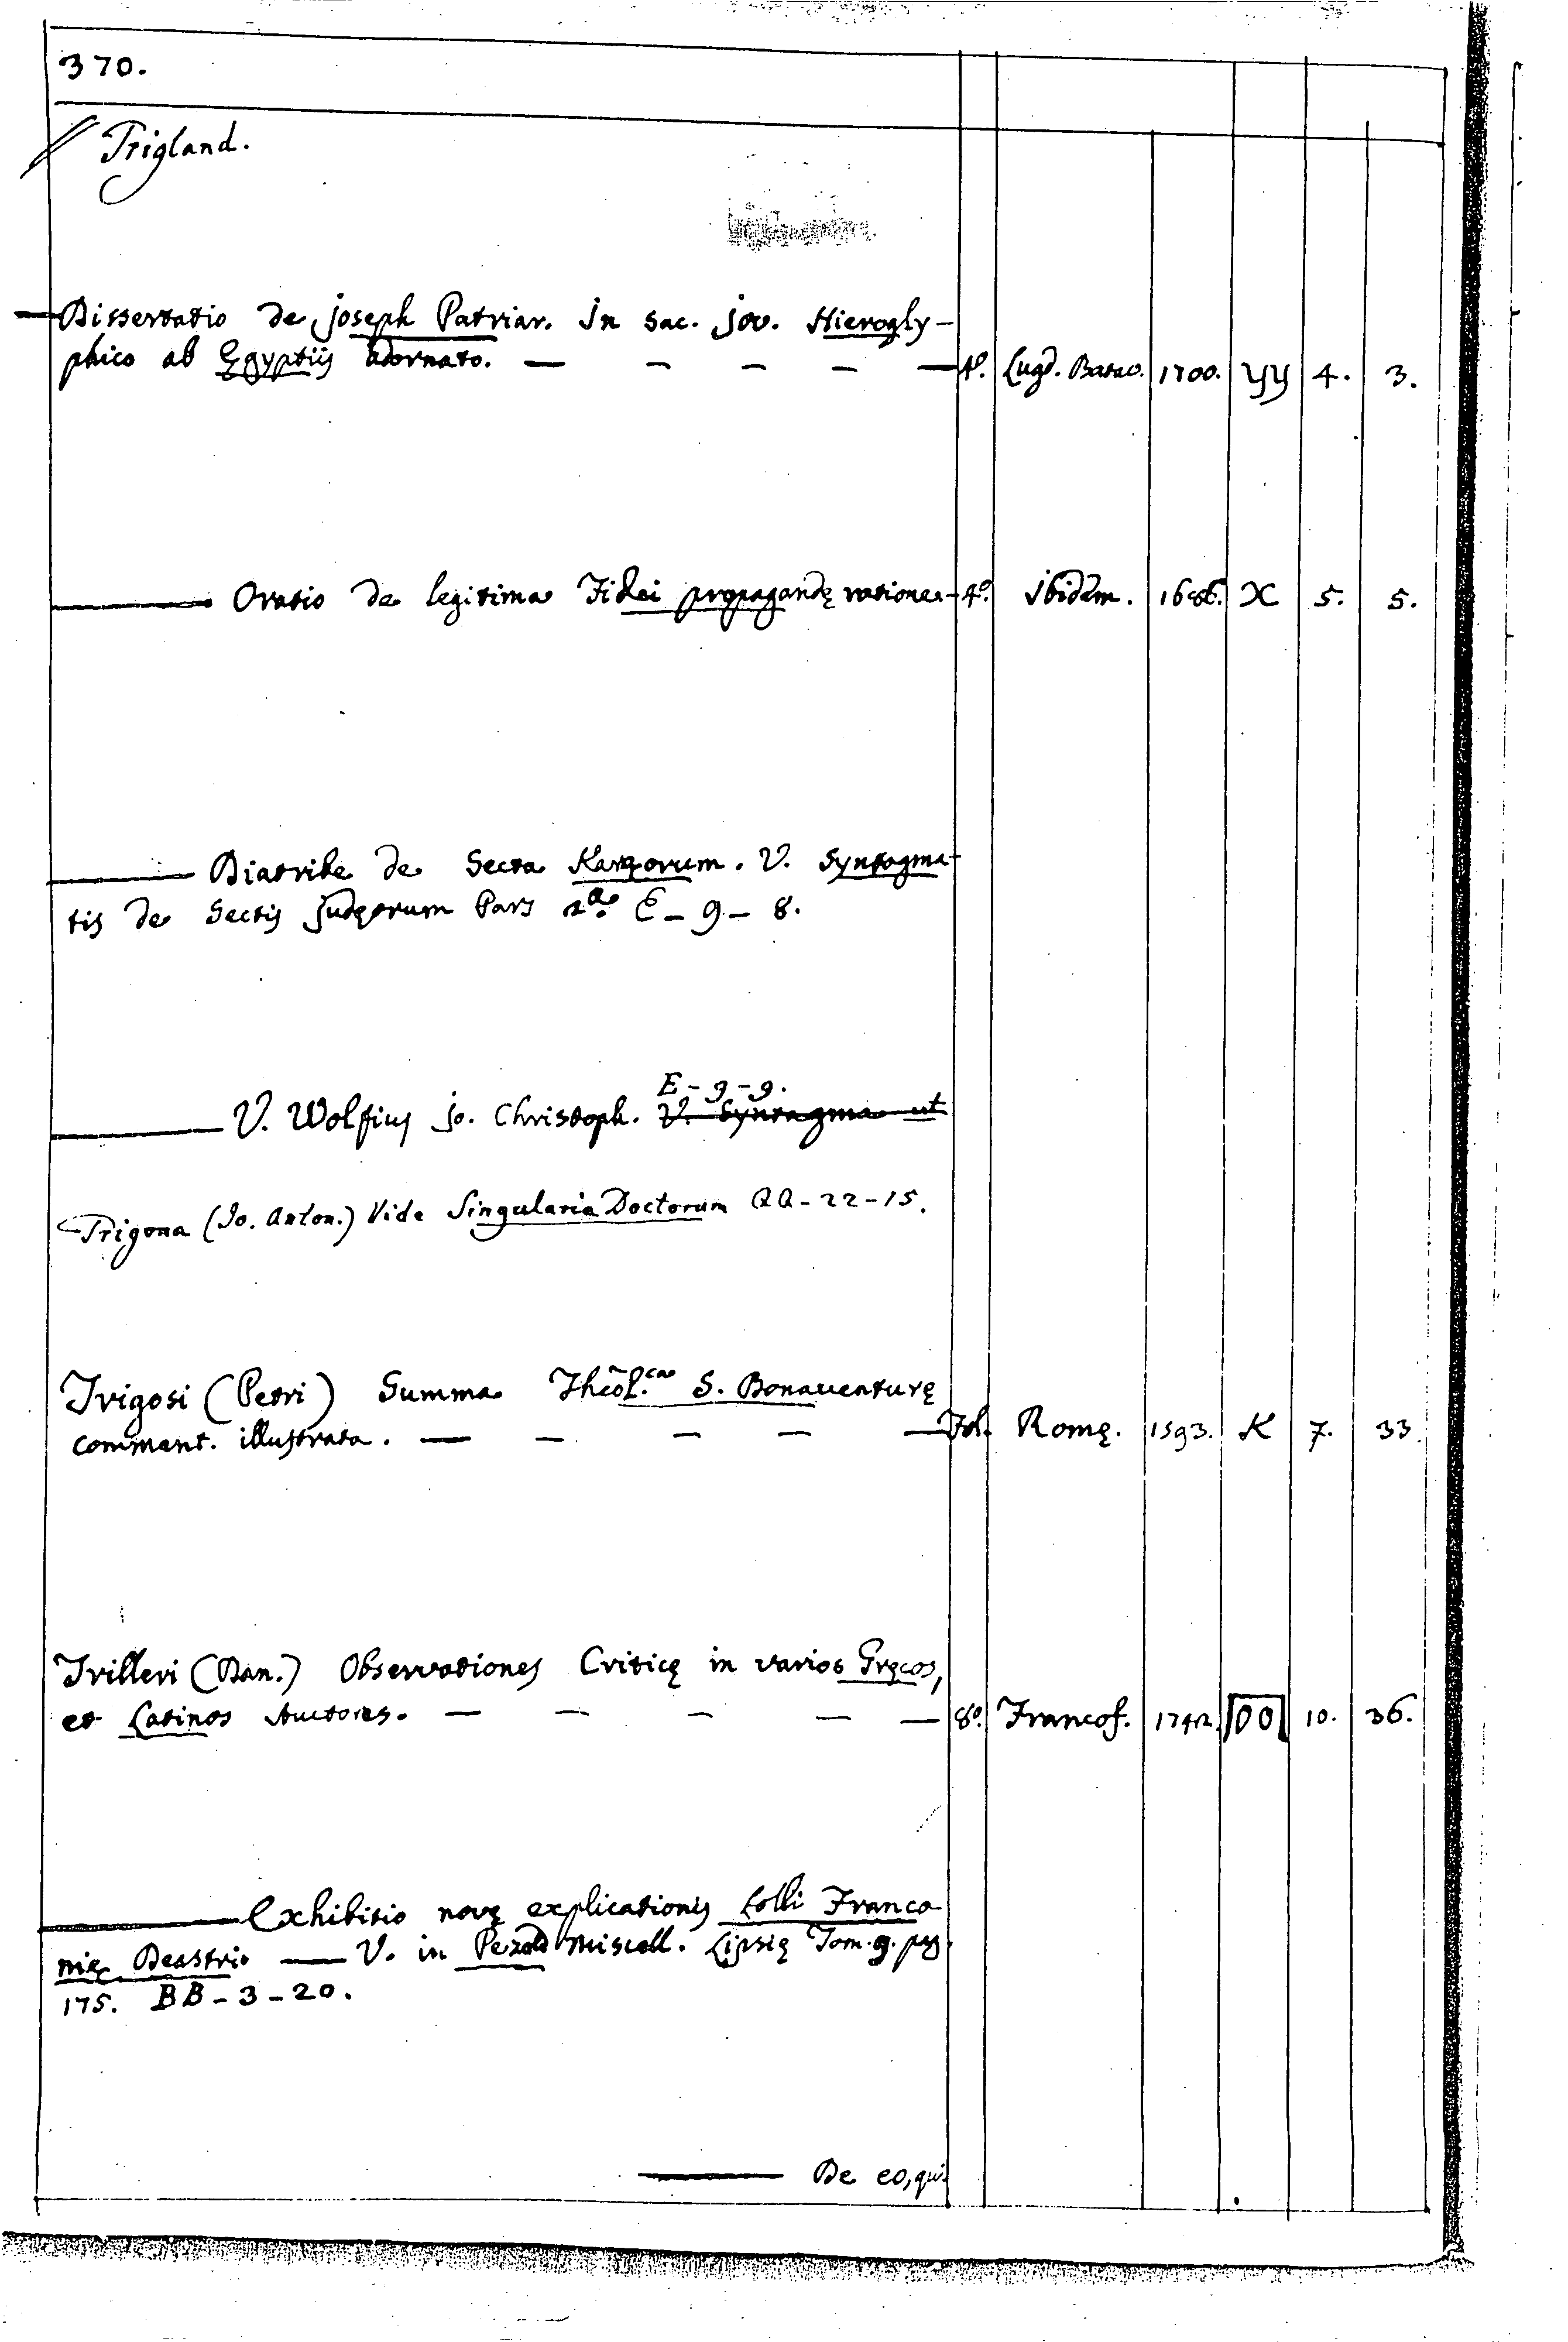 370.
Trigland.
— Dissertatio de joseph Patriar. in sac. jov. Hierogly-
phico ab Ęgyptiis adornato. — — — — — 4º. Lugd. Batav. 1700. YY 4. 3.
—— Oratio de legitima Fidei propagandę ratione. - 4º. ibidem. X 5. 5.
—— Diatribe de Secta Karęorum. V. Syntagma-
tis de Sectis Judęorum Pars 2da. E - 9 - 8.
E - 9 - 9.
—— V. Wolfius jo. Christoph. V. Syntagma ut
Trigona (Jo. Anton.) Vide Singularia Doctorum QQ - 22 - 15.
Trigosi (Petri) Summa Theol.ca S. Bonaventurę
comment. illustrata. — — — — — Fol. Romę. 1593. K 7. 33.
Trilleri (Dan.) Observationes Criticę in varios Gręcos,
et Latinos Auctores. — — — — — 8º. Francof. 1742. OO 10. 36.
—— Exhibitio novę explicationis Lolli Franco
nię Deastri — V. in Pezold Miscell. Lipsię Tom. 9. pag.
175. BB - 3 - 20.
—— De eo, qui